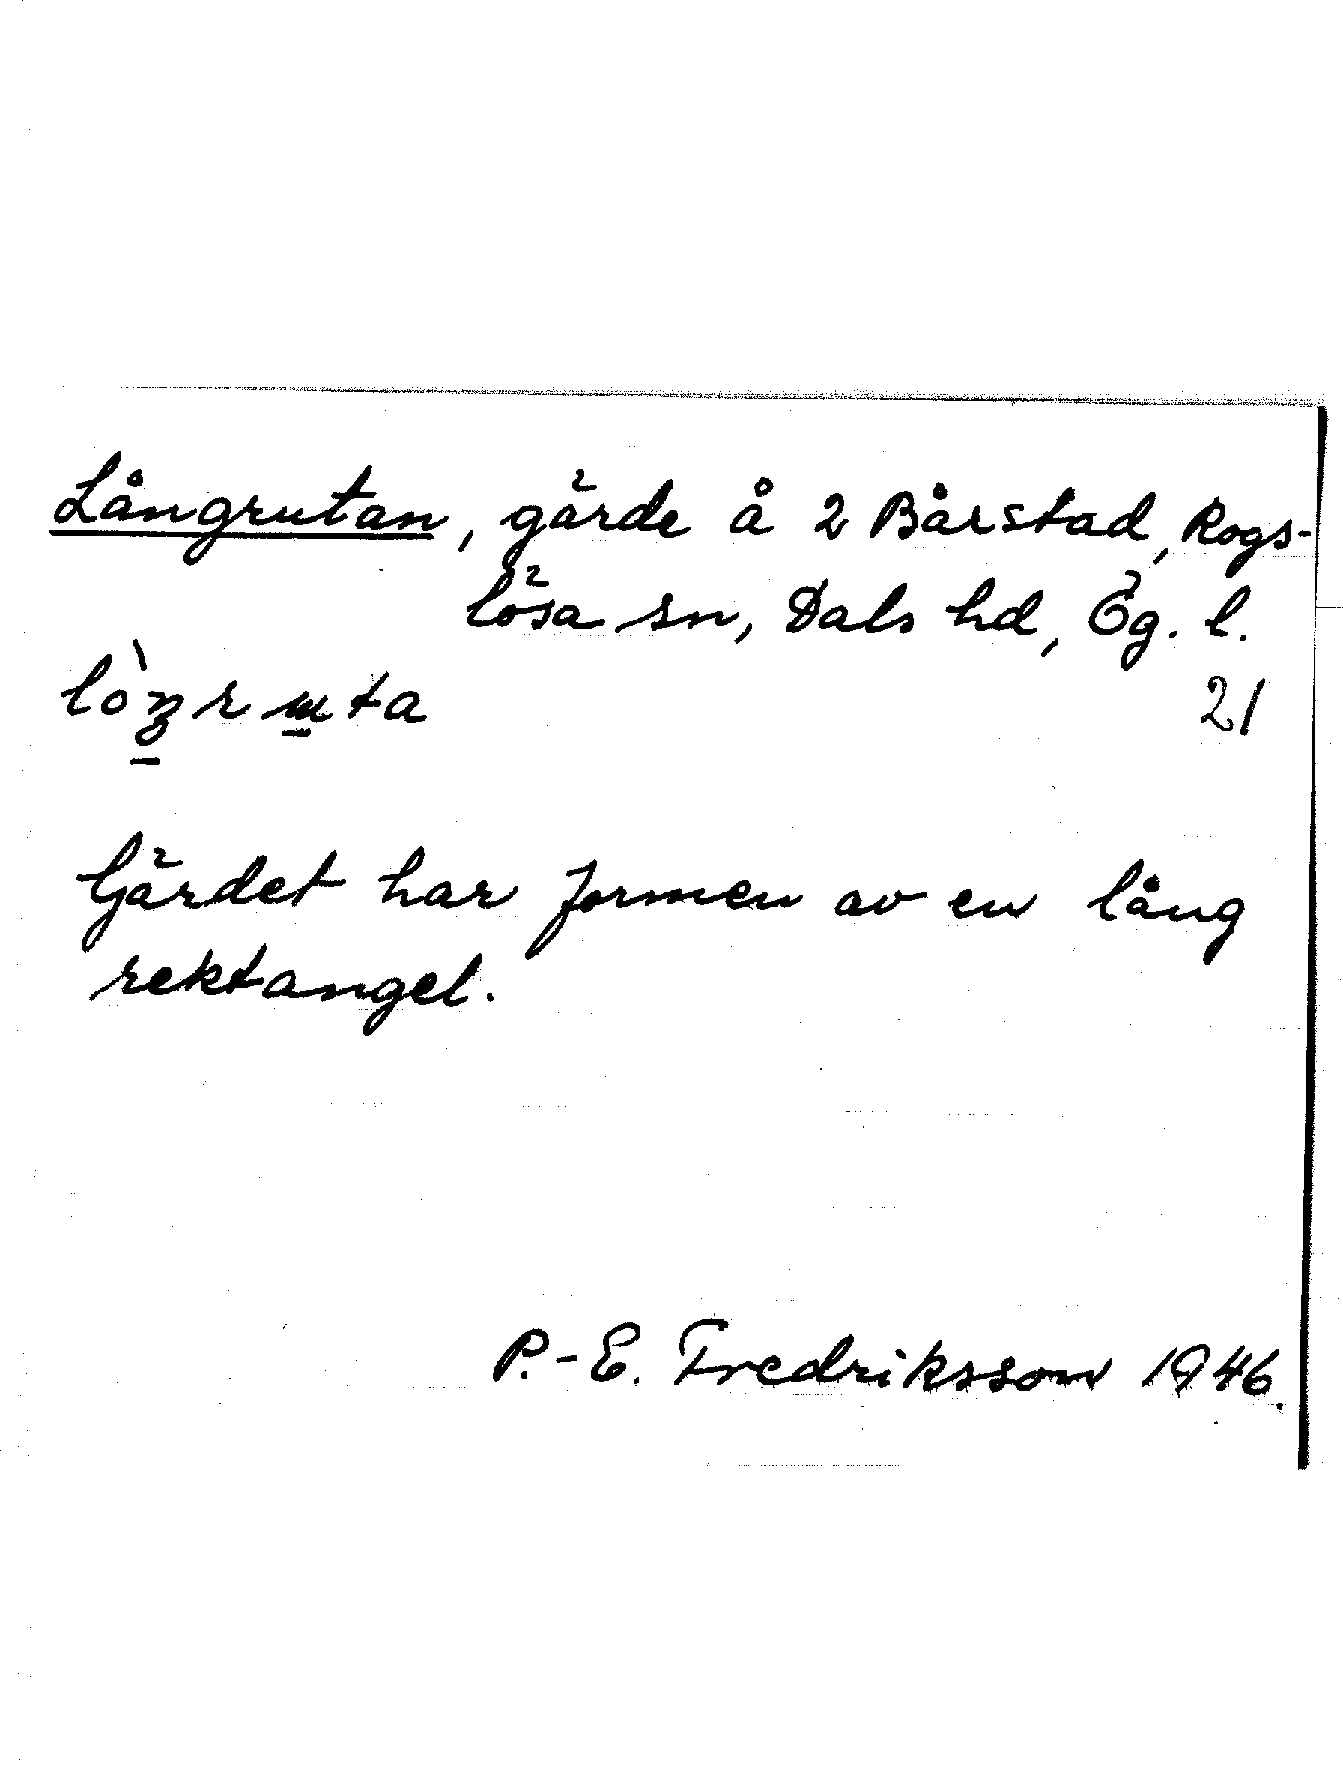 Långrutan, gärde å 2 Bårstad, Rogs-
lösa sn, Dals hd, Ög. l.
21
Gärdet har formen av en lång
rektangel.
P.-E. Fredriksson 1946.